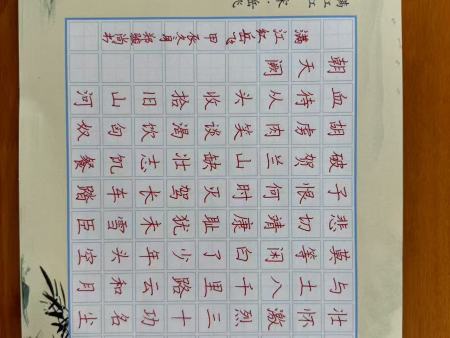 满江红 宋·岳飞
壮怀激烈三十功名尘
与土八千里路云和月
莫等闲白了少年头空
悲切靖康耻犹未雪臣
子恨何时灭驾长车踏
破贺兰山缺壮志饥餐
胡虏肉笑谈渴饮匈奴
血待从头收拾旧山河
朝天阙
满江红岳飞 甲